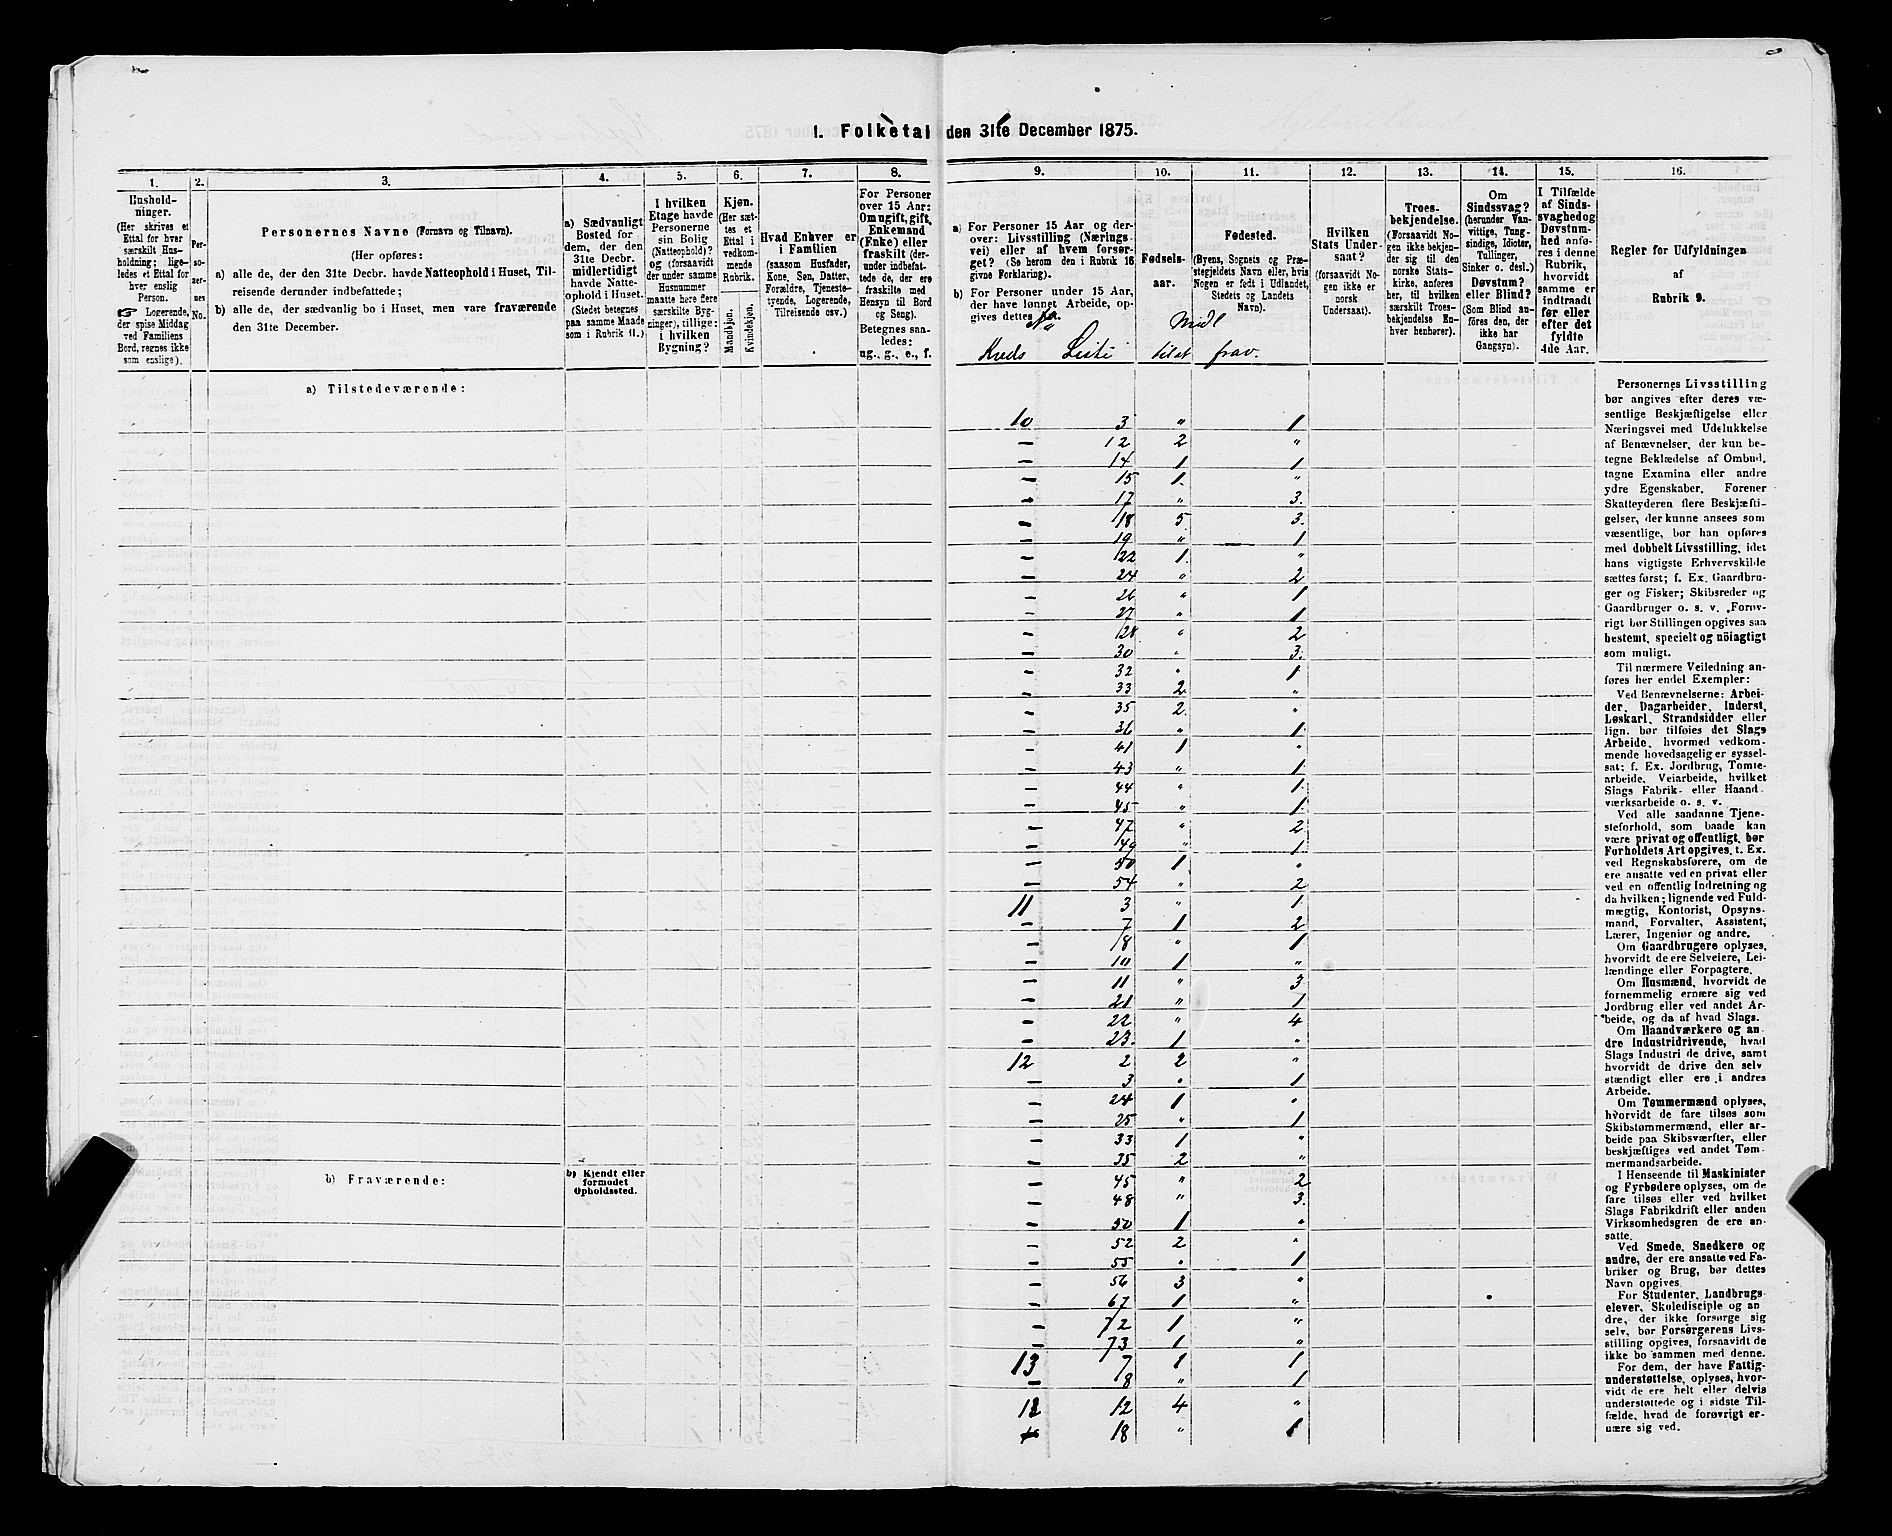 1. Folketal den 31te December 1875.
1. 2. 3. 4. 5. 6. 7. 8. 9. 10. 11. 12. 13. 14. 15. 16.
Husholdninger.
(Her skrives et
Ettal for hver
særskilt Husholdning; ligeledes et Ettal for
hver enslig
Person.
☞ Logerende,
der spise Middag
ved Familiens
Bord, regnes ikke
som enslige).
Personernes No.
Personernes Navne (Fornavn og Tilnavn).
(Her opføres:
a) alle de, der den 31te Decbr. havde Natteophold i Huset, Tilreisende derunder indbefattede;
b) alle de, der sædvanlig bo i Huset, men vare fraværende
den 31te December.
a) Sædvanligt
Bosted for
dem, der den
31te Decbr.
midlertidigt
havde Natteophold i Huset.
(Stedet betegnes
paa samme Maade
som i Rubrik 11.)
I hvilken
Etage havde
Personerne
sin Bolig
(Natteophold)?
og (forsaavidt
der under samme
Husnummer
maatte høre flere
særskilte Bygninger), tillige:
i hvilken
Bygning?
Kjøn.
(Her sættes et
Ettal i
vedkommende
Rubrik.
Mandkjøn.
Kvindekjøn.
Hvad Enhver er
i Familien
(saasom Husfader,
Kone, Søn, Datter,
Forældre, Tjenestetyende, Logerende,
Tilreisende osv.)
For Personer
over 15 Aar:
Om ugift, gift,
Enkemand
(Enke) eller
fraskilt (derunder indbefattede de, der ere
fraskilte med
Hensyn til Bord
og Seng).
Betegnes saaledes:
ug., g., e., f.
a) For Personer 15 Aar og derover: Livsstilling (Næringsvei) eller af hvem forsørget? (Se herom den i Rubrik 16
givne Forklaring).
b) For Personer under 15 Aar,
der have lønnet Arbeide, opgives dettes
Fødselsaar.
Fødested.
(Byens, Sognets og Præstegjeldets Navn eller, hvis
Nogen er født i Udlandet,
Stedets og Landets
Navn).
Hvilken
Stats Undersaat?
(forsaavidt Nogen ikke er
norsk
Undersaat).
Troesbekjendelse.
(Forsaavidt Nogen ikke bekjender sig til den
norske Statskirke, anføres
her, til hvilken
særskilt Troesbekjendelse Enhver henhører).
Om
Sindssvag?
(herunder Vanvittige, Tungsindige, Idioter,
Tullinger,
Sinker o. desl.)
Døvstum?
eller Blind?
(Som Blind anføres den, der
ikke har
Gangsyn).
I Tilfælde
af Sindssvaghed og
Døvstumhed anføres i denne
Rubrik,
hvorvidt
samme er
indtraadt
før eller
efter det
fyldte
4de Aar.
Regler for Udfyldningen
af
Rubrik 9.
Kreds Liste tilst frav.
Midl
a) Tilstedeværende:
10 3 " 1
— 12 2 "
— 14 1 1
— 15 1. "
— 17 " 3.
— 18 5 3.
— 19 " 1
— 22 1. "
— 24 " 2
— 26 " 1
— 27 " 1
— 28 " 2
— 30 " 3.
— 32 " 1
— 33 2 "
— 35 2. "
— 36 " 1.
— 41 1 "
— 43 " 1.
— 44 " 1.
— 45 " 1.
— 47 " 2
— 49 " 1.
— 50 1 "
— 54 " 2
11 3 " 1.
— 7 1 2
— 8 " 1
— 10 1 "
— 11 " 3
— 21 " 1
— 22 " 4
— 23. 1 "
12 2 2 "
— 3 " 1
— 24 1 "
— 25 " 1
— 33 1 "
— 35 2 "
— 45 " 2
— 48 " 3.
— 50 1 "
— 52 2 "
— 55 " 1
— 56 3 "
— 67 1 "
— 72 1 "
— 73 1 "
13 7 1 1
— 8 " 1
12 12 4 "
18 " 1
b) Fraværende:
b) Kjendt eller
formodet
Opholdssted.
Personernes Livsstilling
bør angives efter deres væsentlige Beskjæftigelse eller
Næringsvei med Udelukkelse
af Benævnelser, der kun betegne Beklædelse af Ombud,
tagne Examina eller andre
ydre Egenskaber. Forener
Skatteyderen flere Beskjæftigelser, der kunne ansees som
væsentlige, bør han opføres
med dobbelt Livsstilling, idet
hans vigtigste Erhvervskilde
sættes først; f. Ex. Gaardbruger og Fisker; Skibsreder og
Gaardbruger o. s. v. Forøvrigt bør Stillingen opgives saa
bestemt, specielt og nöiagtigt
som muligt.
Til nærmere Veiledning anføres her endel Exempler:
Ved Benævnelserne: Arbeider, Dagarbeider, Inderst,
Løskarl, Strandsidder eller
lign. bør tilføies det Slags
Arbeide, hvormed vedkommende hovedsagelig er sysselsat; f. Ex. Jordbrug, Tomtearbeide, Veiarbeide, hvilket
Slags Fabrik- eller Haandværksarbeide o. s. v.
Ved alle saadanne Tjenesteforhold, som baade kan
være privat og offentligt, bør
Forholdets Art opgives, t. Ex.
ved Regnskabsførere, om de
ere ansatte ved en privat eller
ved en offentlig Indretning og
da hvilken; lignende ved Fuldmægtig, Kontorist, Opsynsmand, Forvalter, Assistent,
Lærer, Ingeniør og andre.
Om Gaardbrugere oplyses,
hvorvidt de ere Selveiere, Leilændinge eller Forpagtere.
Om Husmænd, hvorvidt de
fornemmelig ernære sig ved
Jordbrug eller ved andet Arbeide, og da af hvad Slags.
Om Haandværkere og andre Industridrivende, hvad
Slags Industri de drive, samt
hvorvidt de drive den selvstændigt eller ere i andres
Arbeide.
Om Tømmermænd oplyses,
hvorvidt de fare tilsøs som
Skibstømmermænd, eller arbeide paa Skibsværfter, eller
beskjæftiges ved andet Tømmermandsarbeide.
I Henseende til Maskinister
og Fyrbødere oplyses, om de
fare tilsøs eller ved hvilket
Slags Fabrikdrift eller anden
Virksomhedsgren de ere ansatte.
Ved Smede, Snedkere og
andre, der ere ansatte ved Fabriker og Brug, bør dettes
Navn opgives.
For Studenter, Landbrugselever, Skoledisciple og andre, der ikke forsørge sig
selv, bør Forsørgerens Livsstilling opgives, forsaavidt de
ikke bo sammen med denne.
For dem, der have Fattigunderstøttelse, oplyses, hvorvidt de ere helt eller delvis
understøttede og i sidste Tilfælde, hvad de forøvrigt ernære sig ved.